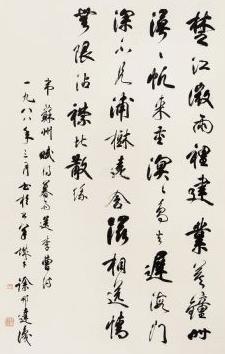 楚江微雨裡建業暮鐘時
漠漠帆來重冥冥鳥去遲海門
深不見浦樹遠含滋相送情
無限沾襟比散絲
韋蘇州賦得暮雨送李曹詩
一九八八年三月書於 徐邦達識